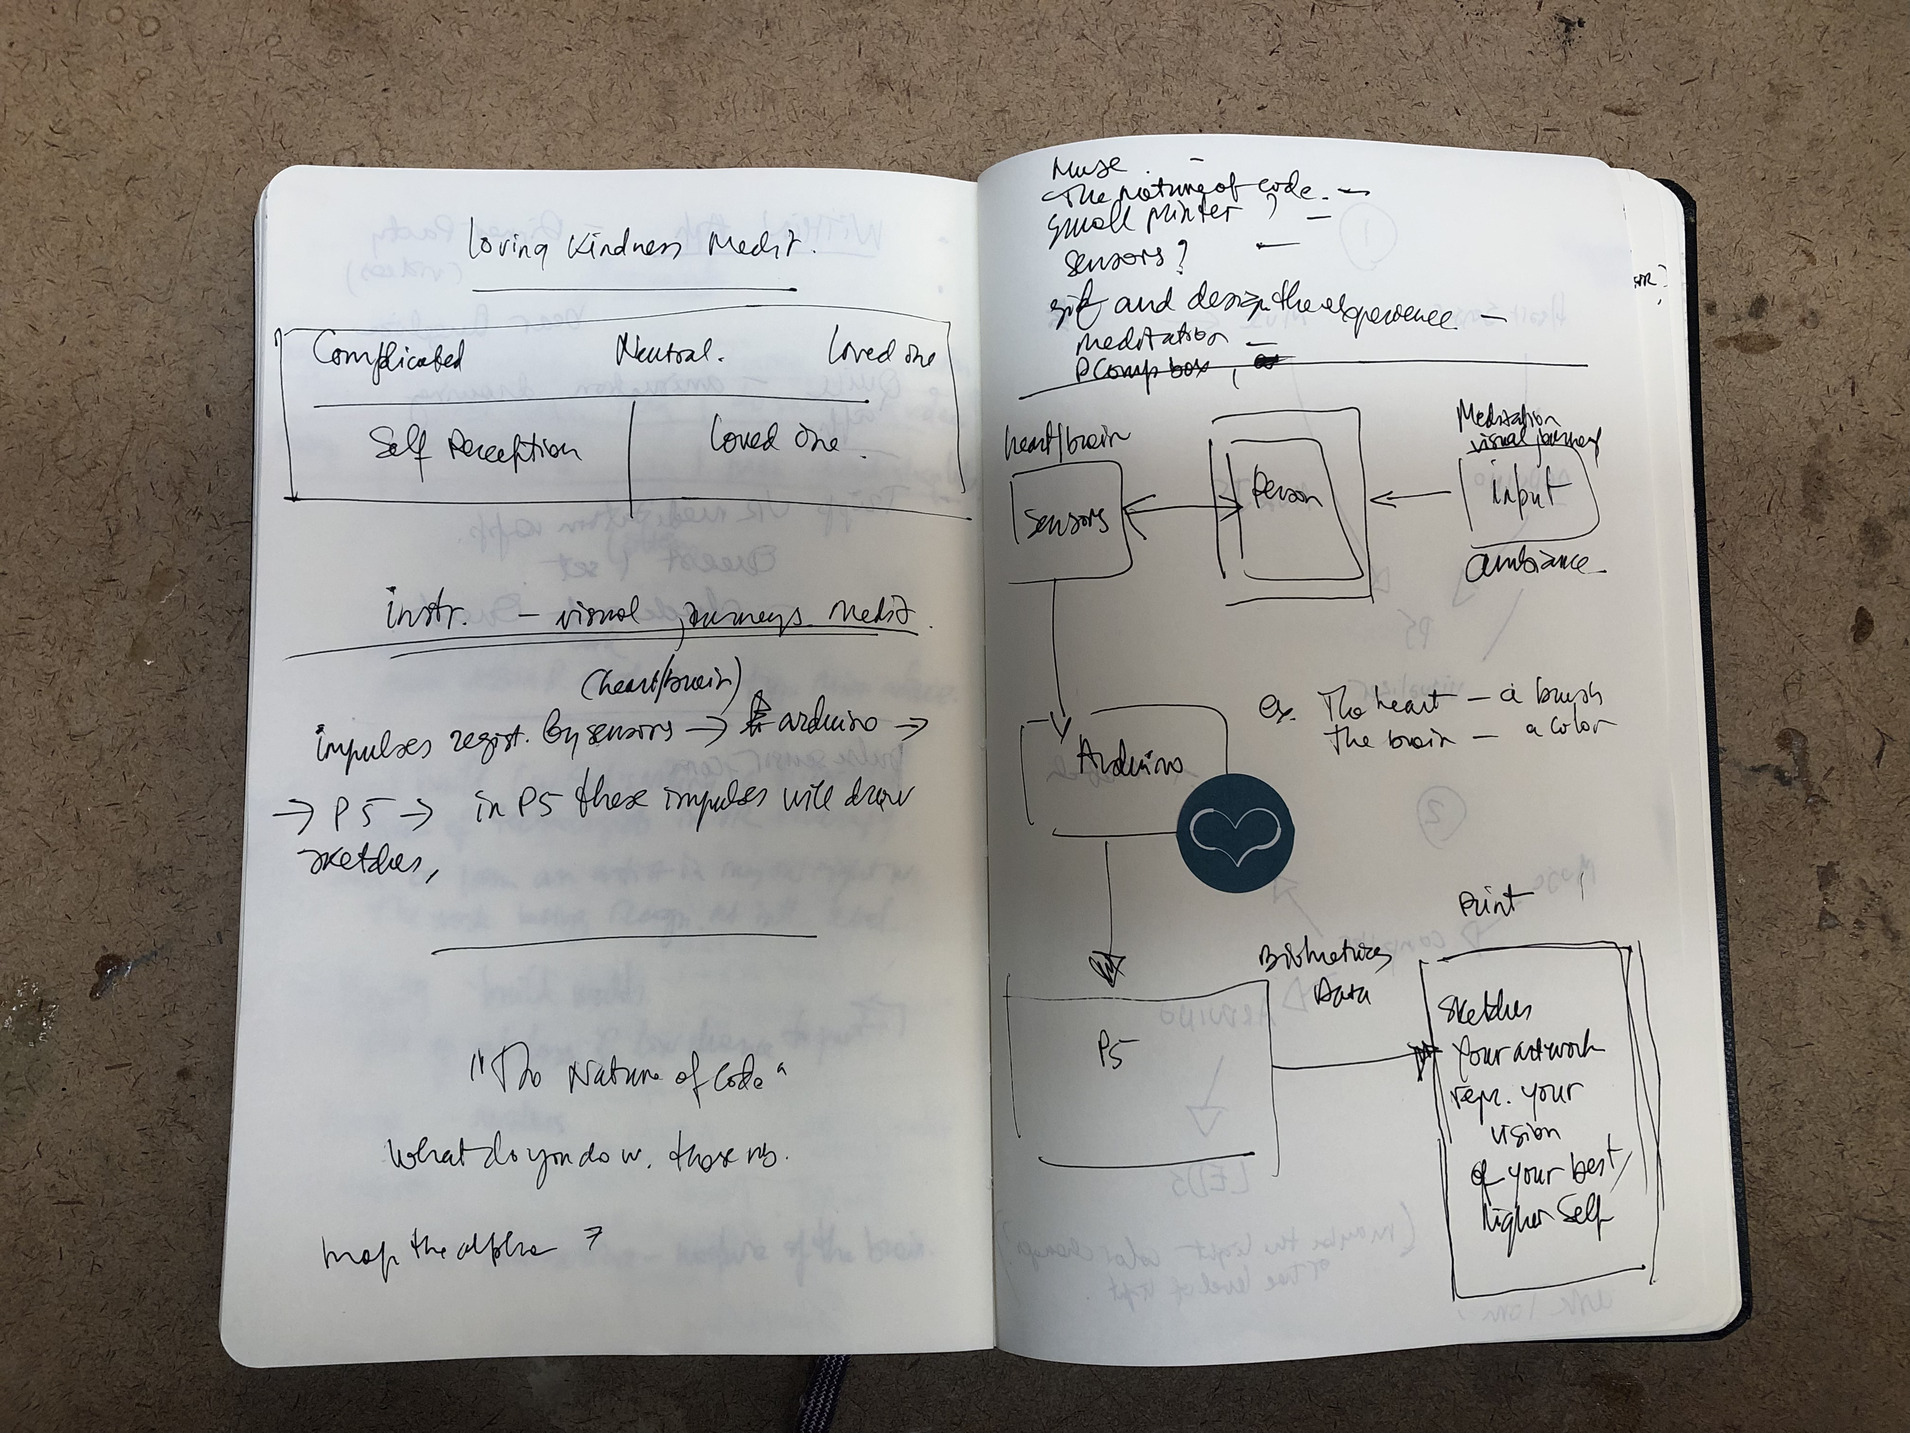 Loving Kindness Medit.
Complicated Neutral. Loved one
Self Perception Loved one.
instr. - visual journeys. Medit.
(heart/brain)
impulses regist. by sensors → arduino →
→ P5 → in P5 these impulses will draw
sketches,
"The Nature of Code"
What do you do w. those
map the alpha
Muse -
The nature of code. -
Small printer ? -
sensors? -
and design the experience. -
meditation -
PComp box,
heart/brain
Sensors
Person
Meditation
visual journey
input
ambiance
ex. The heart - a brush
the brain - a color
Arduino
P5
Biometrics
Data
Print
Sketches
Your artwork
repr. your
vision
of your best/
higher Self